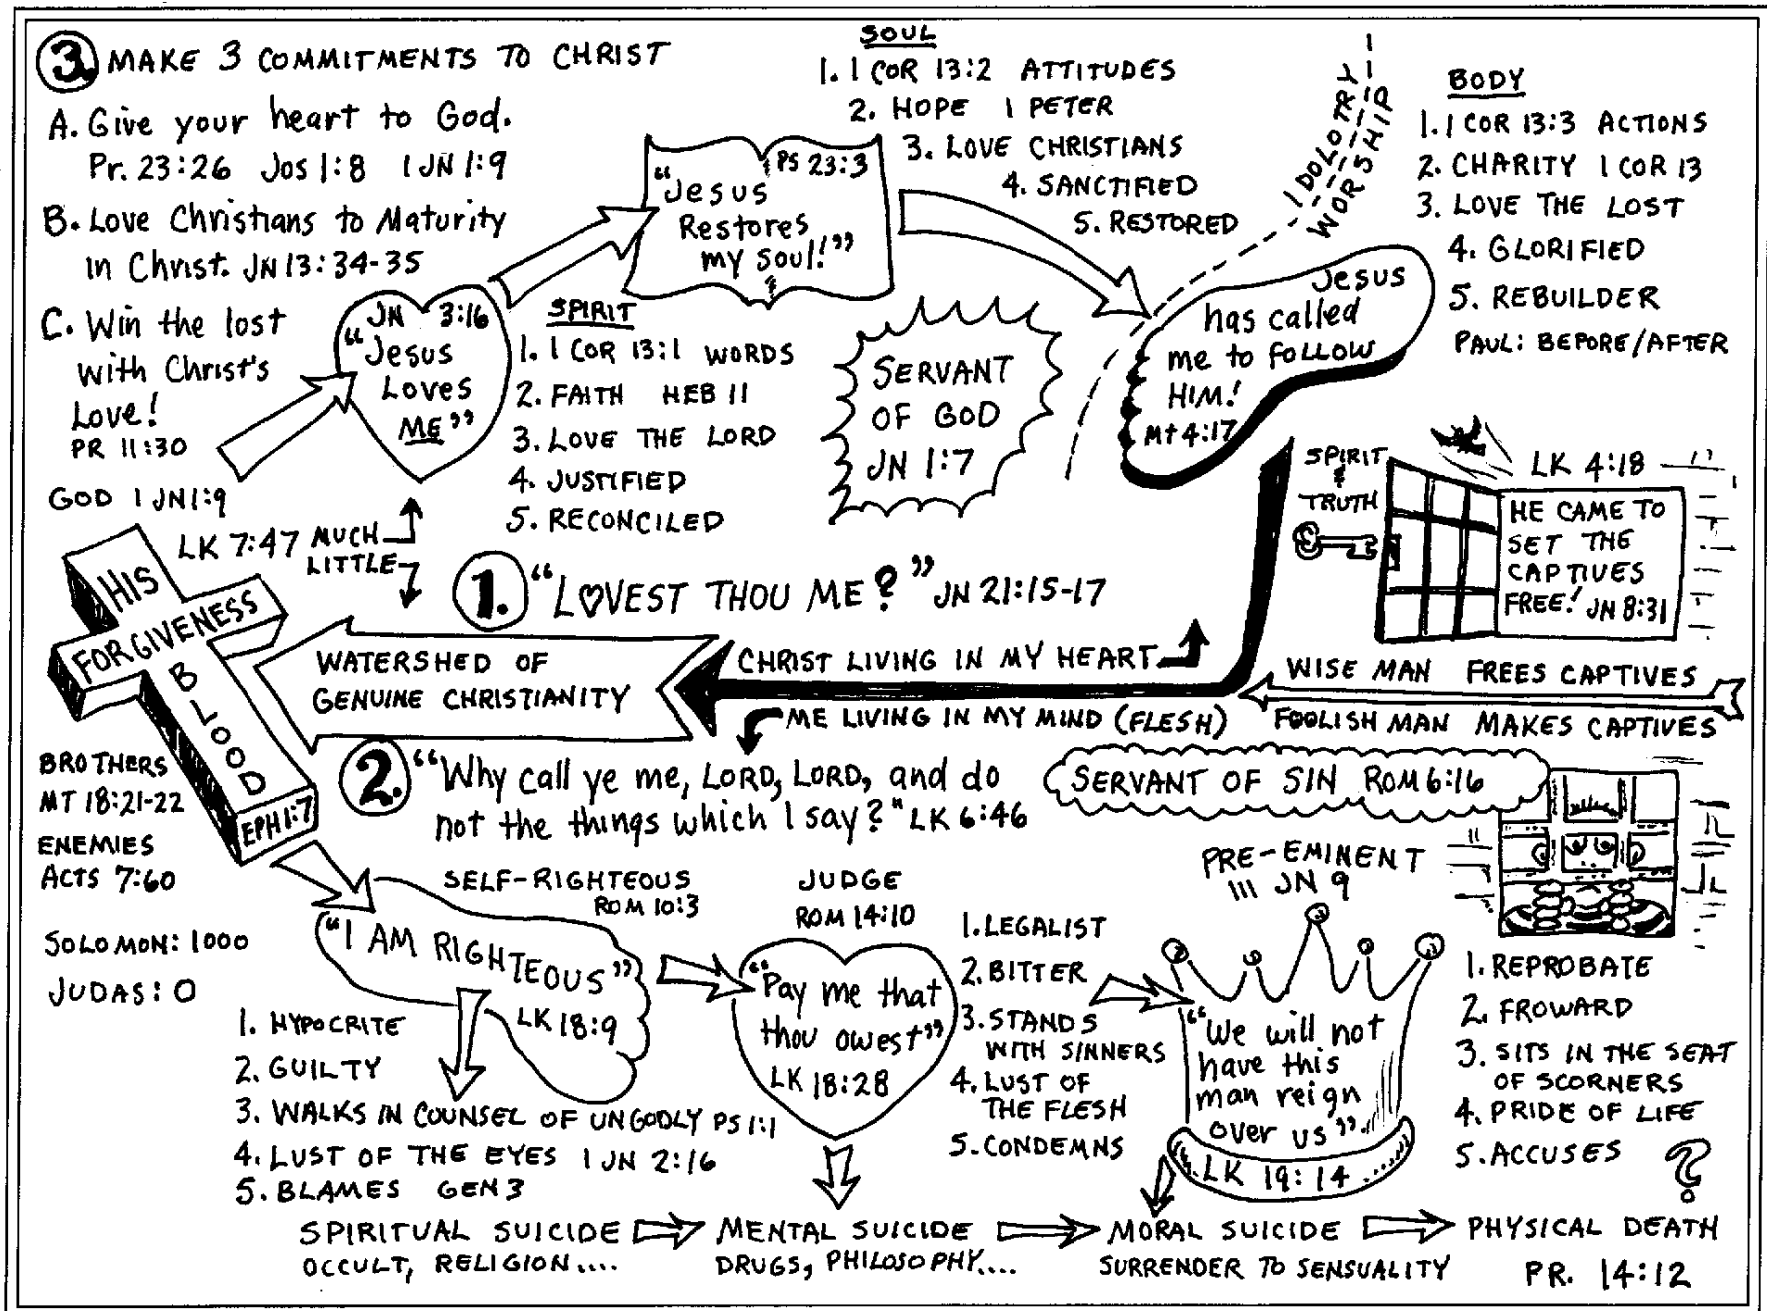 3. MAKE 3 COMMITMENTS TO CHRIST
A. Give your heart to God.
Pr. 23:26 Jos 1:8 1 JN 1:9
B. Love Christians to Maturity
in Christ. JN 13:34-35
C. Win the lost
with Christ's
Love!
PR 11:30
GOD 1 JN 1:9
JN 3:16
"Jesus
Loves
ME"
"Jesus PS 23:3
Restores
my soul!"
SOUL
1. 1 COR 13:2 ATTITUDES
2. HOPE 1 PETER
3. LOVE CHRISTIANS
4. SANCTIFIED
5. RESTORED
IDOLOTRY
WORSHIP
BODY
1. 1 COR 13:3 ACTIONS
2. CHARITY 1 COR 13
3. LOVE THE LOST
4. GLORIFIED
5. REBUILDER
PAUL: BEFORE/AFTER
SPIRIT
1. 1 COR 13:1 WORDS
2. FAITH HEB 11
3. LOVE THE LORD
4. JUSTIFIED
5. RECONCILED
SERVANT
OF GOD
JN 1:7
Jesus
has called
me to follow
HIM!
Mt 4:17
SPIRIT
&
TRUTH
LK 4:18
HE CAME TO
SET THE
CAPTIVES
FREE! JN 8:31
LK 7:47 MUCH
LITTLE
HIS
FORGIVENESS
BLOOD
EPH 1:7
1. "LOVEST THOU ME?" JN 21:15-17
WATERSHED OF
GENUINE CHRISTIANITY
CHRIST LIVING IN MY HEART
ME LIVING IN MY MIND (FLESH)
WISE MAN FREES CAPTIVES
FOOLISH MAN MAKES CAPTIVES
BROTHERS
MT 18:21-22
ENEMIES
ACTS 7:60
SOLOMON: 1000
JUDAS: 0
2. "Why call ye me, LORD, LORD, and do
not the things which I say?" LK 6:46
SERVANT OF SIN ROM 6:16
SELF-RIGHTEOUS
ROM 10:3
"I AM RIGHTEOUS"
LK 18:9
1. HYPOCRITE
2. GUILTY
3. WALKS IN COUNSEL OF UNGODLY PS 1:1
4. LUST OF THE EYES 1 JN 2:16
5. BLAMES GEN 3
JUDGE
ROM 14:10
"Pay me that
thou owest"
LK 18:28
1. LEGALIST
2. BITTER
3. STANDS
WITH SINNERS
4. LUST OF
THE FLESH
5. CONDEMNS
PRE-EMINENT
III JN 9
"We will not
have this
man reign
over us"
LK 19:14
1. REPROBATE
2. FROWARD
3. SITS IN THE SEAT
OF SCORNERS
4. PRIDE OF LIFE
5. ACCUSES ?
SPIRITUAL SUICIDE
OCCULT, RELIGION....
MENTAL SUICIDE
DRUGS, PHILOSOPHY....
MORAL SUICIDE
SURRENDER TO SENSUALITY
PHYSICAL DEATH
PR. 14:12